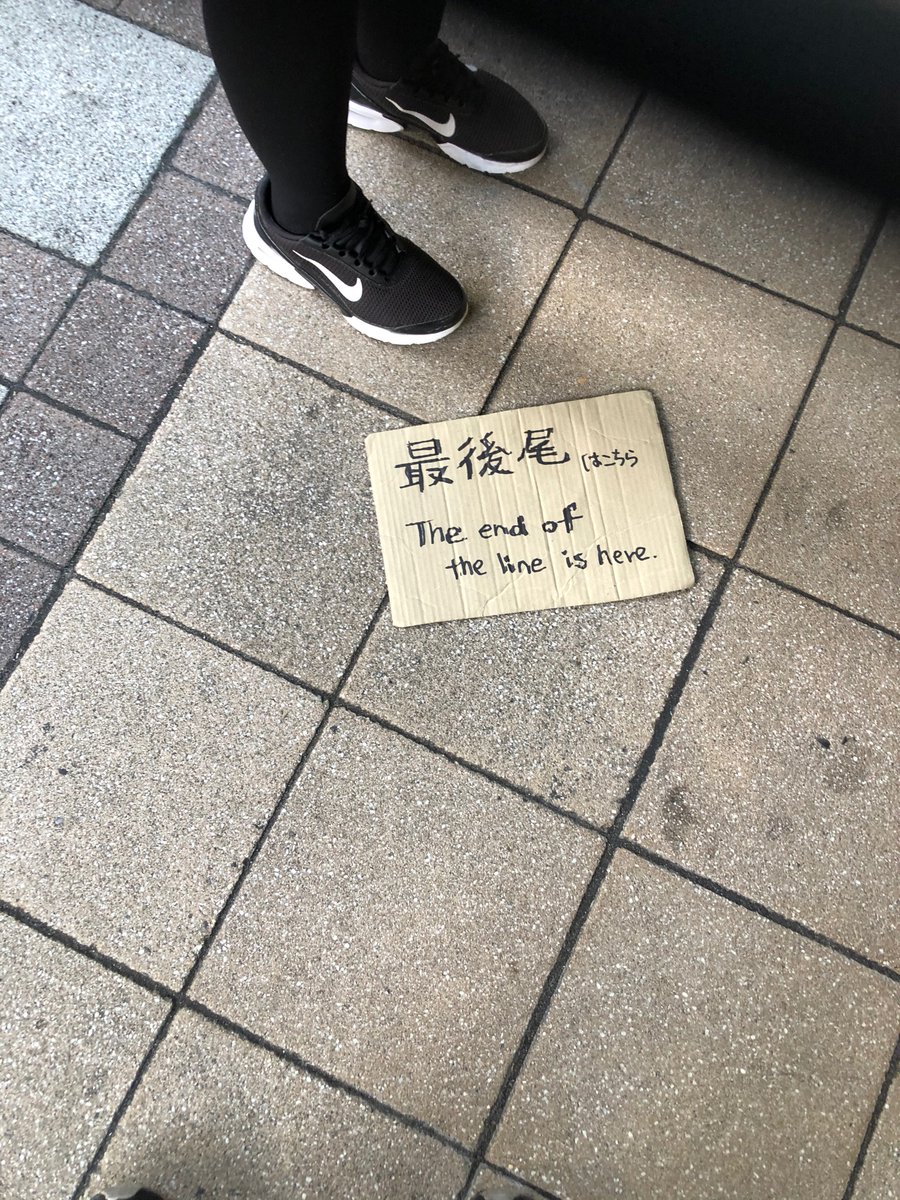 最後尾はこちら
The end of
the line is here.